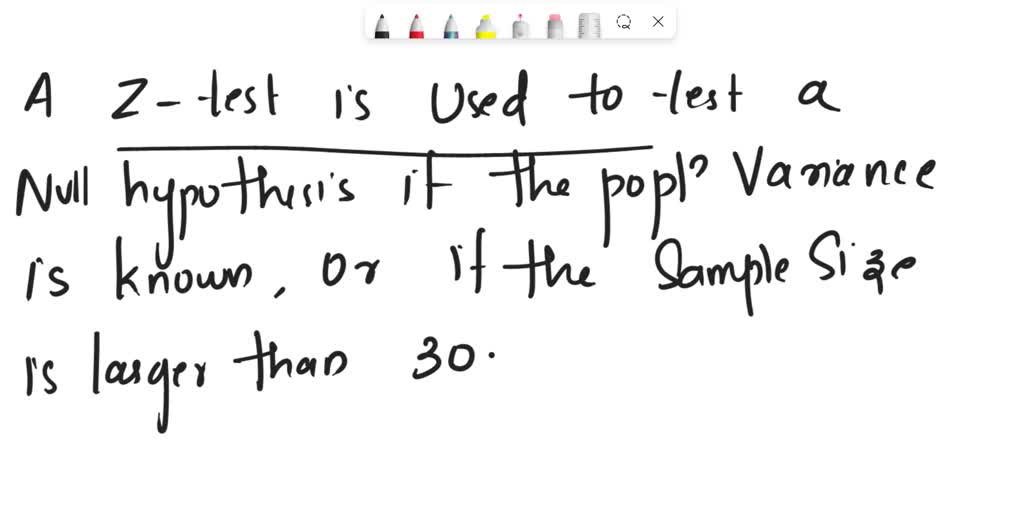 A Z-test is Used to test a
Null hypothesis if the popl? Variance
is known, or if the Sample Size
is larger than 30.